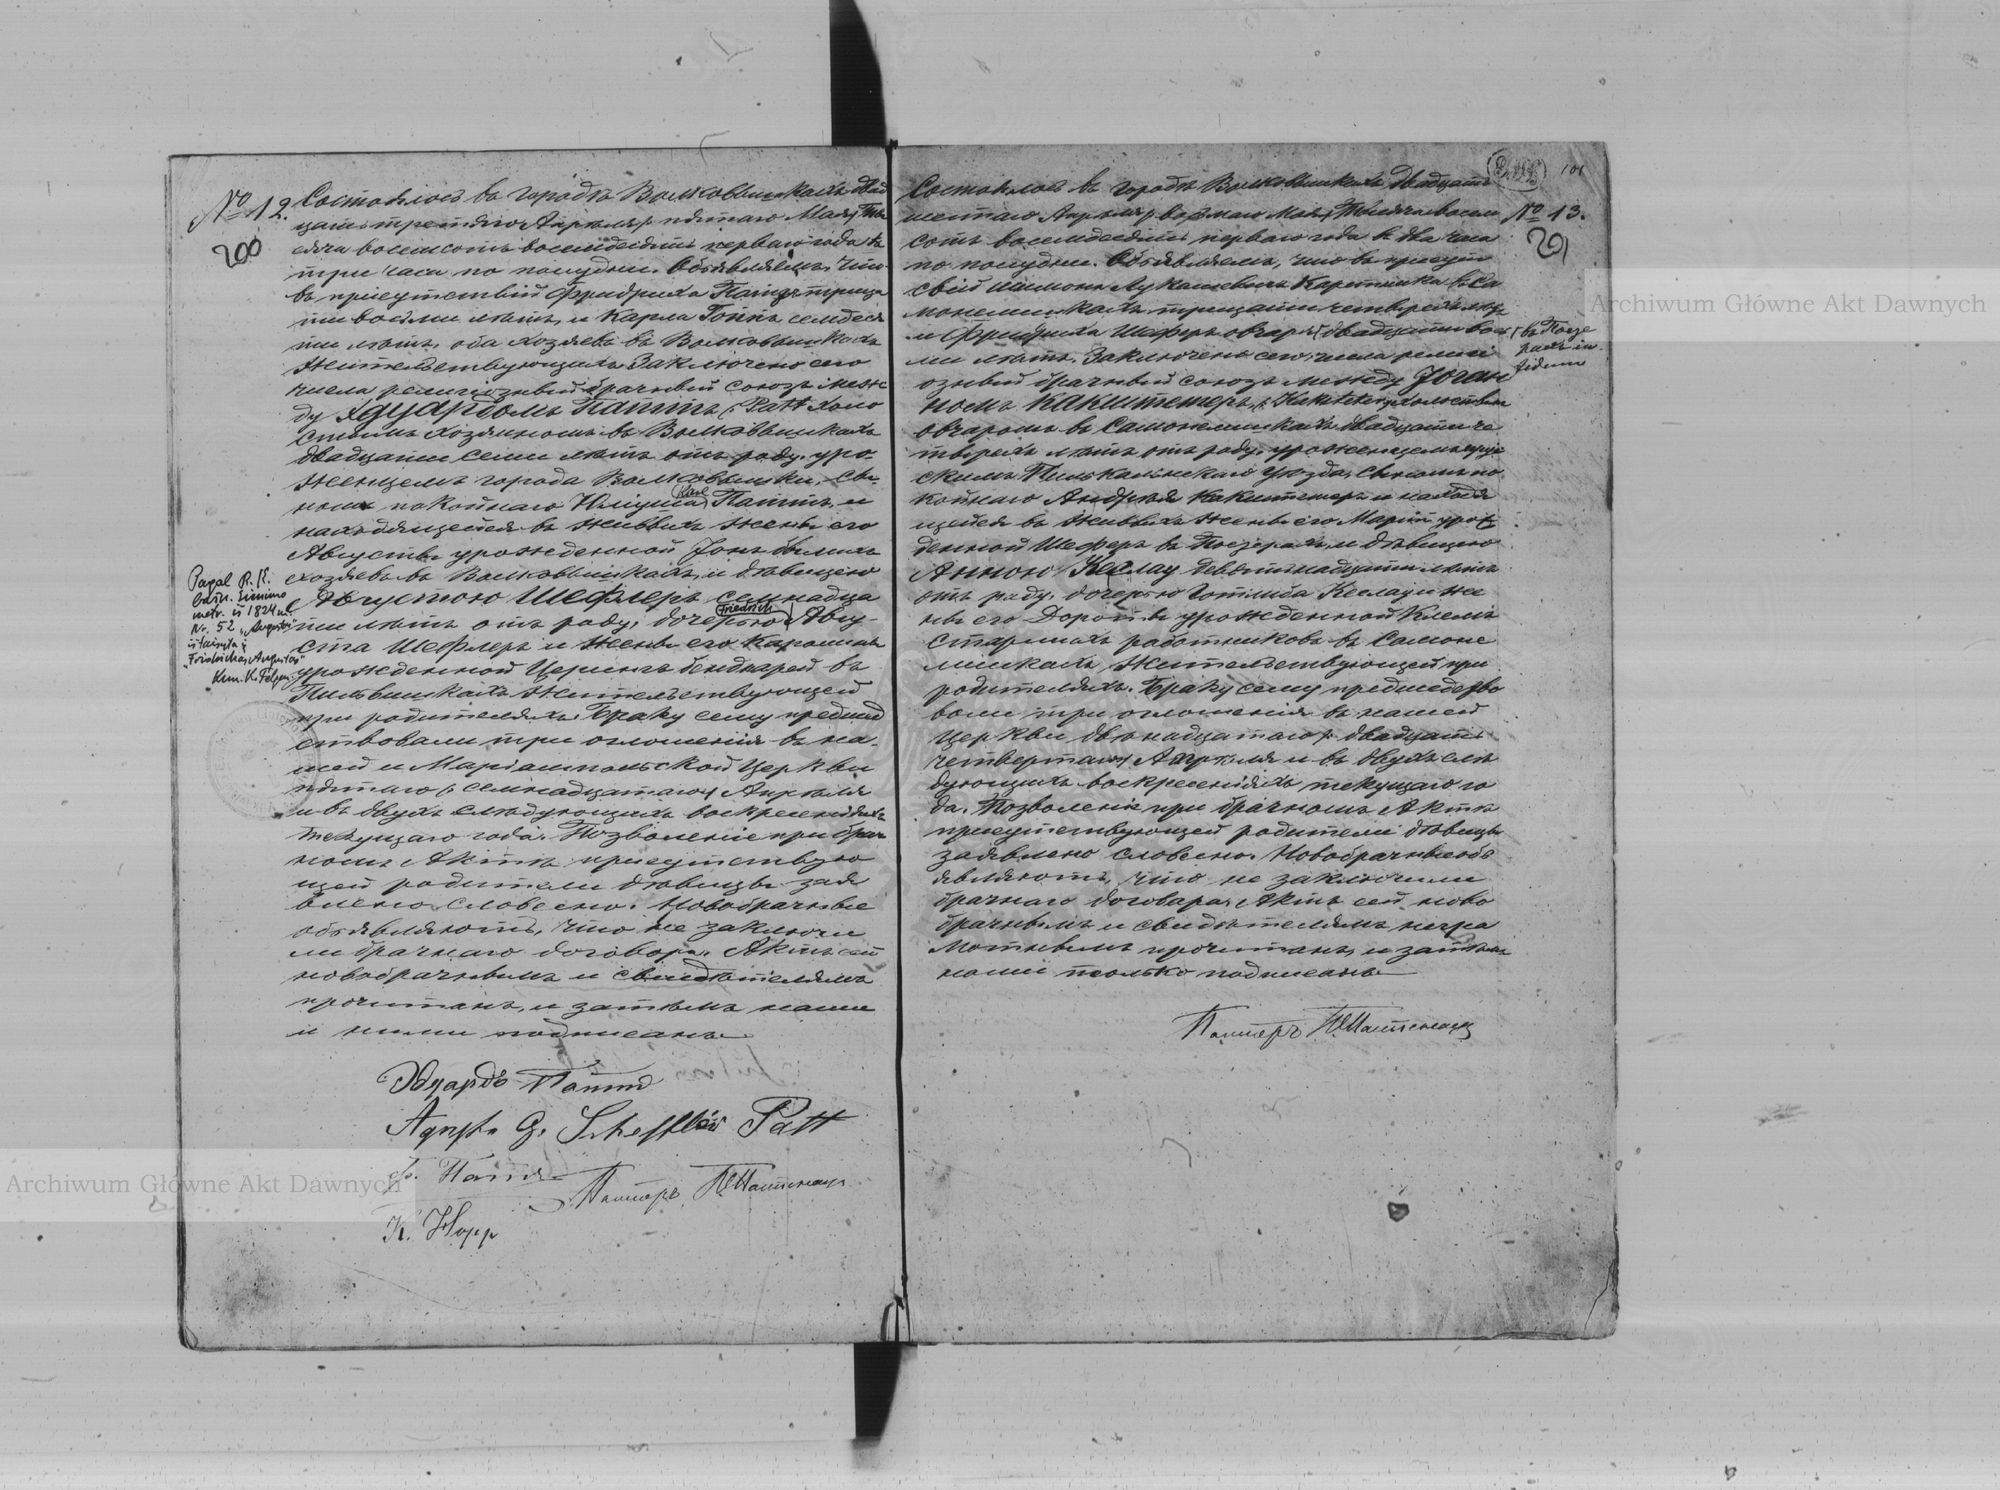 № 12.
200
Состоялось въ городѣ Волковышкахъ двад
цать третяго Апрѣля / пятаго Мая / Ты
сяча восемсотъ восемдесятъ перваго года въ
три часа по полудни. Объявляемъ, что
въ присутствіи Фридриха Патцъ трица
ти восьми лѣтъ, и Карла Гоппъ семдеся
ти лѣтъ, оба хозяевъ въ Волковышкахъ
жительствующихъ заключено сего
числа религіозный брачный союзъ меж
ду Эдуардомъ Паттъ / Patt холо
стымъ хозяиномъ въ Волковышкахъ
двадцати семи лѣтъ отъ роду, уро-
женцемъ города Волковышки, сы-
номъ покойнаго Юліуша Karl Паттъ, и
находящейся въ живыхъ жены его
Августы урожденной Јонъ бывшихъ
хозяевъ въ Волковышкахъ, и дѣвицею
Августою Шефлеръ семнадца
ти лѣтъ отъ роду, дочерью Friedrich Авгу-
ста Шефлеръ и жены его Каролины
урожденной Церингъ бендкарей въ
Пильвишкахъ жительствующей
при родителяхъ. Браку сему предшед
ствовали три оглошенія въ на-
шей и Маріампольской Церкви
пятаго / семнадцатаго / Апрѣля
и въ двухъ слѣдующихъ воскресеніяхъ
текущаго года. Позволеніе при брач
номъ Актѣ присутствую
щей родители дѣвицы зая
влено словесно. Новобрачные
объявляютъ, что не заключи
ли брачнаго договора. Актъ сей
новобрачнымъ и свидѣтелямъ
прочитанъ, и затѣмъ нами
и ними подписанъ
Pagal R. K.
bažn. Gimimo
metr. iš 1824 m.
Nr. 52 „Augustas"
ištaisyta į
„Fridrichas Augustas"
Kun.
Эдуардъ Паттъ
Augusta G. Scheffler Patt
Ф. Патц
Пасторъ
К. Hopp
101
№ 13.
201
Состоялось въ городѣ Волковышкахъ двадцать
шестаго Апрѣля / восмаго Мая / Тысяча восем
сотъ восемдесятъ перваго года въ два часа
по полудни. Объявляемъ, что въ присут
ствіи Шимона Лукашевича въ Са
тридцати четырехъ лѣтъ
и Фридриха Шеферъ овчаря / двадцати вось
ми лѣтъ. Заключено сего числа религі
озный брачный союзъ между Јоган
номъ Какштетеръ, / Kakstetter / холостымъ
овчаромъ въ двадцати че
тырехъ лѣтъ отъ роду, уроженцемъ прус
скимъ Пилькаленскаго уѣзда, сыномъ по
койнаго Андрея Какштетеръ и находя
щейся въ живыхъ жены его Маріи урож
денной Шеферъ въ и дѣвицею
Анною Кеслау девятнадцати лѣтъ
отъ роду, дочерью Готлиба Кеслау и же
ны его Доротеи урожденной Клемъ
работниковъ въ
жительствующей при
родителяхъ. Браку сему предшедство
вали три оглошенія въ нашей
Церкви двѣнадцатаго / двадцать
четвертаго / Апрѣля и въ двухъ слѣ
дующихъ воскресеніяхъ, текущаго го
да. Позволеніе при брачномъ Актѣ
присутствующей родители дѣвицы
заявлено словесно. Новобрачные объ
являютъ, что не заключили
брачнаго договора. Актъ сей ново
брачнымъ и свидѣтелямъ негра
мотнымъ прочитанъ, и затѣмъ
нами только подписанъ
Пасторъ
Archiwum Główne Akt Dawnych
Archiwum Główne Akt Dawnych